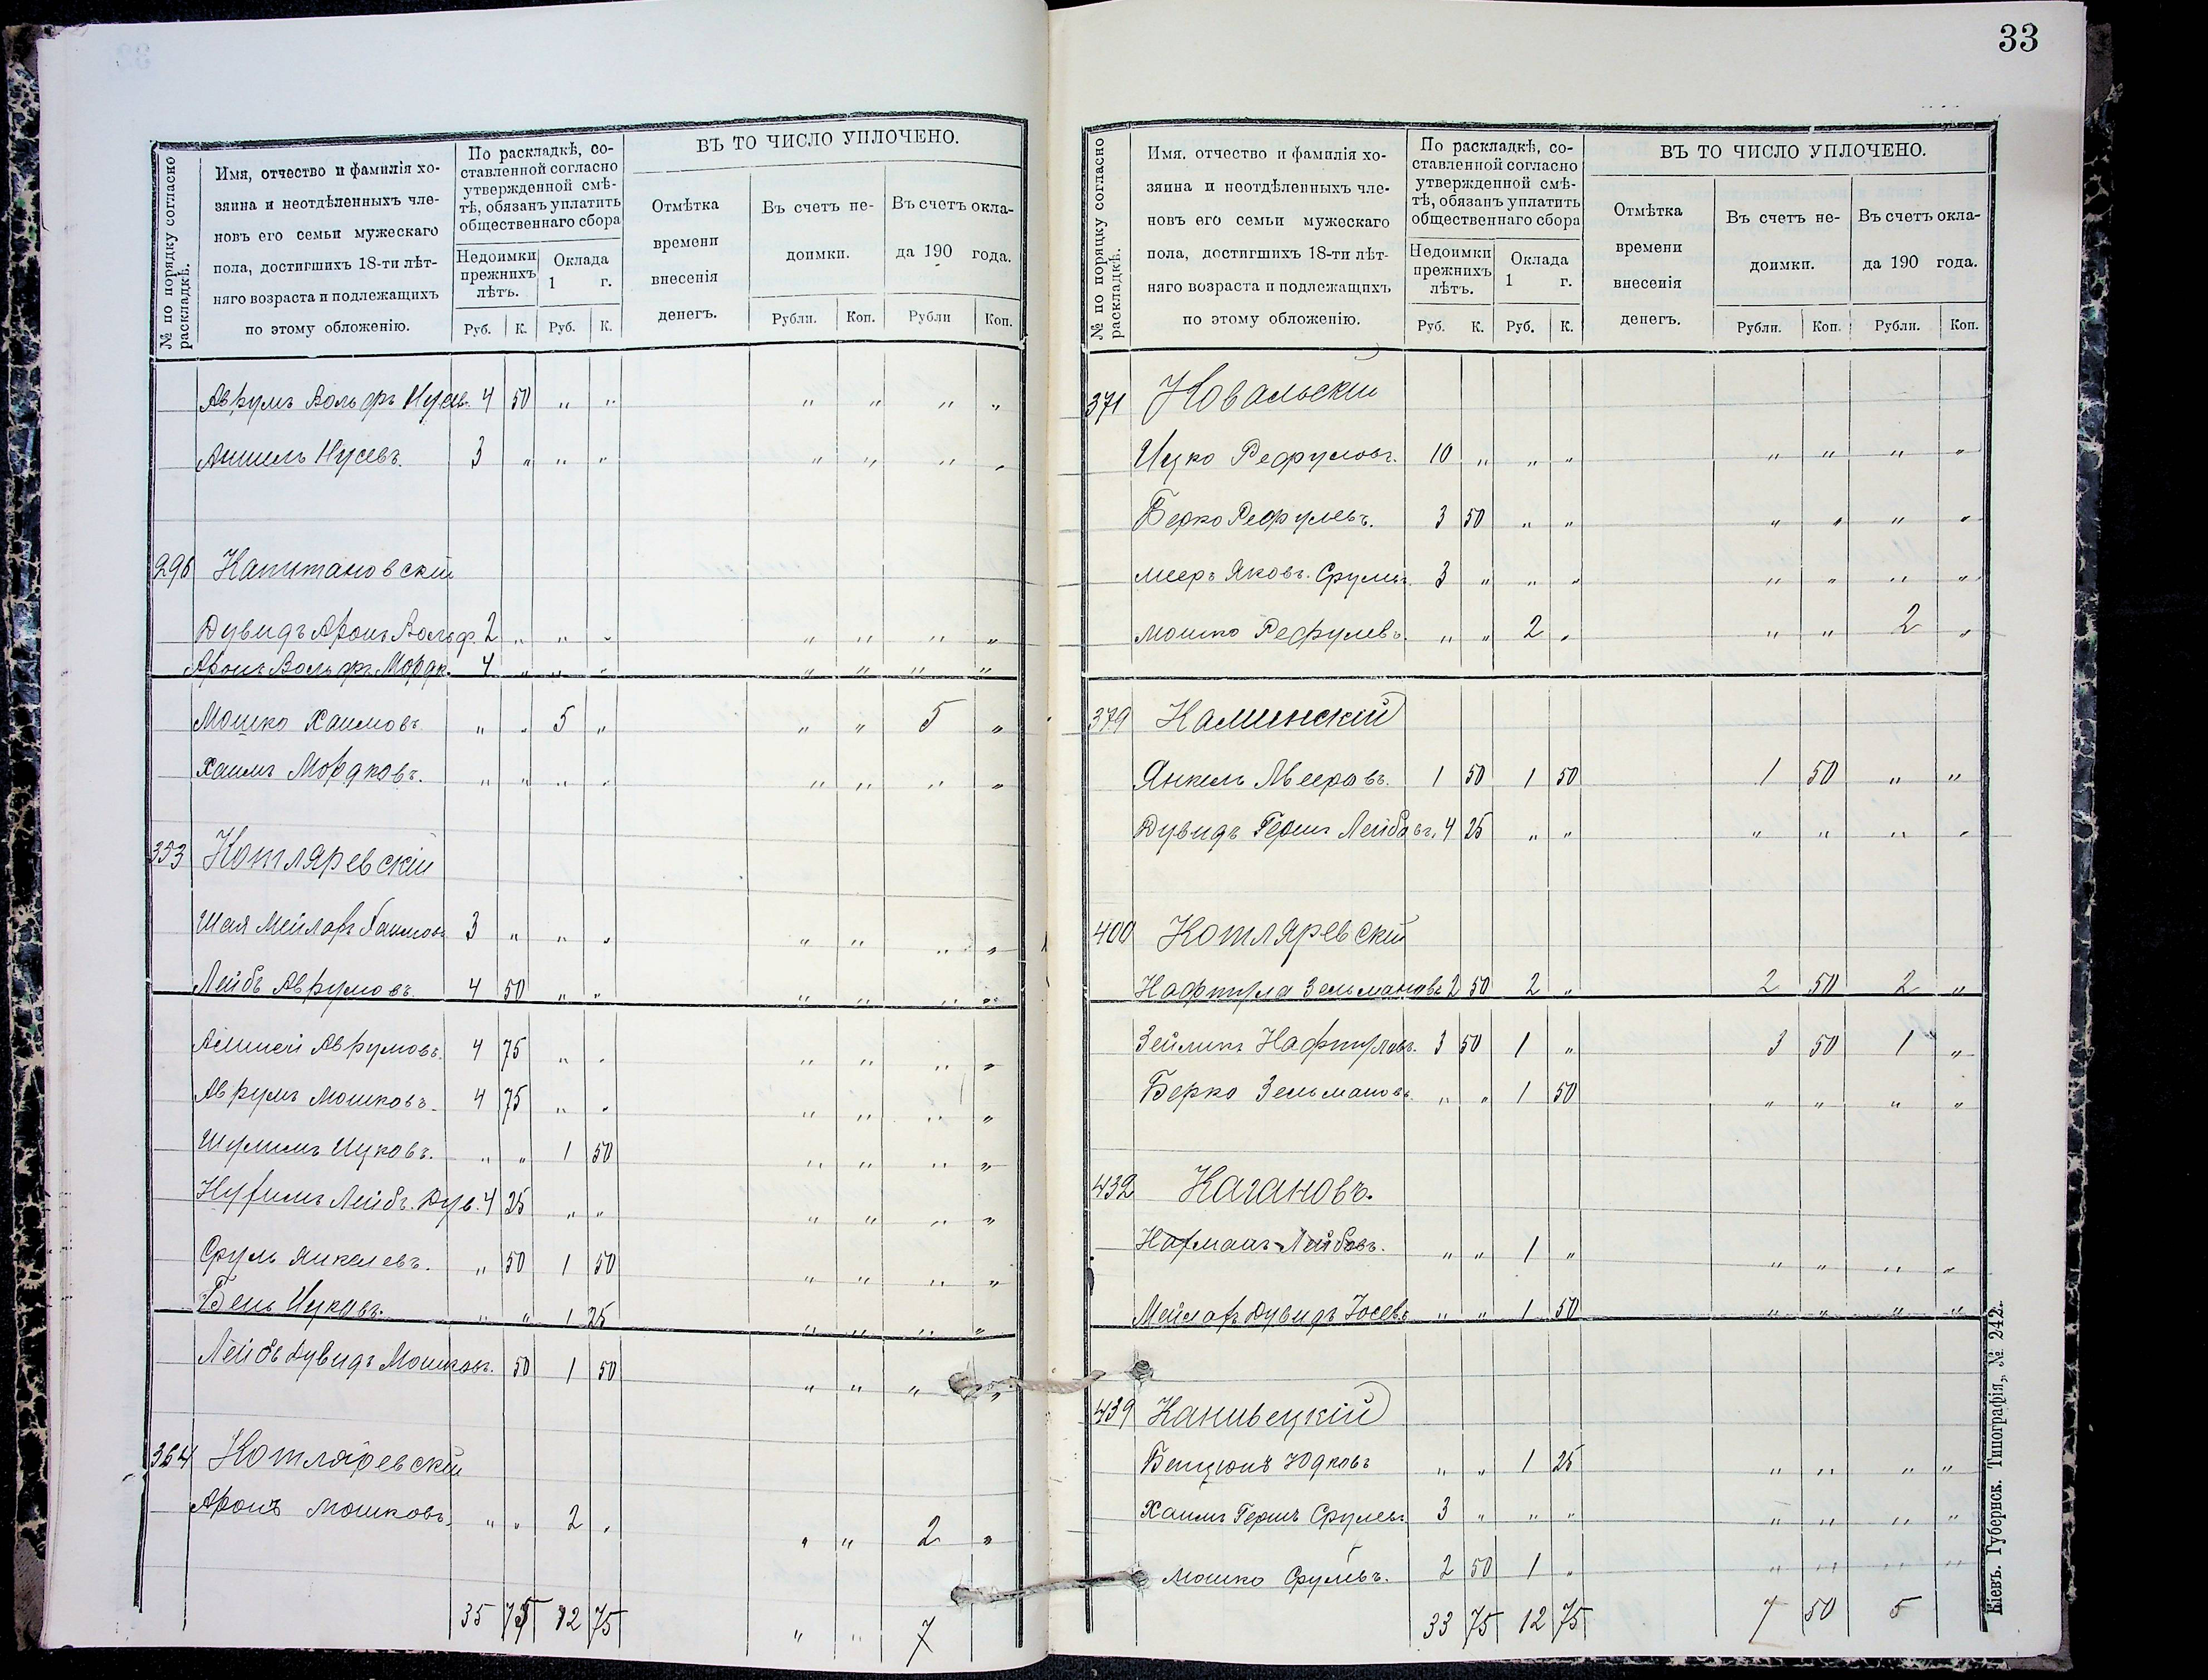 33
№ по порядку согласно раскладкѣ.
Имя, отчество и фамилія хо-
зяина и неотдѣленныхъ чле-
новъ его семьи мужескаго
пола, достигшихъ 18-ти лѣт-
няго возраста и подлежащихъ
по этому обложенію.
По раскладкѣ, со-
ставленной согласно
утвержденной смѣ-
тѣ, обязанъ уплатить
общественнаго сбора
Недоимки прежнихъ лѣтъ.
Оклада 1 г.
Руб. К. Руб. К.
ВЪ ТО ЧИСЛО УПЛОЧЕНО.
Отмѣтка времени внесенія денегъ.
Въ счетъ не- доимки.
Въ счетъ окла- да 190 года.
Рубли. Коп. Рубли Коп.
Аврумъ Вольфъ Нусев. 4 50 " " " " " "
Аншель Нусевъ. 3 " " " " " " "
296 Капитановскій
Дувидъ Аронъ Вольф. 2 " " " " " " "
Аронъ Вольфъ Мордк. 4 " " " " " " "
Мошко Хаимовъ " " 5 " " " 5 "
Хаимъ Мордковъ. " " " " " " " "
353 Котляревскій
Шая Мейлахъ Хаимовъ 3 " " " " " " "
Лейбъ Аврумовъ. 4 50 " " " " " "
Аврумовъ. 4 75 " " " " " "
Аврумъ Мошковъ. 4 75 " " " " " "
Шулимъ Ицковъ. " " 1 50 " " " "
Нухимъ Лейбъ. Дув. 4 25 " " " " " "
Сруль Янкелевъ. " 50 1 50 " " " "
Бень Ицковъ. " " 1 25 " " " "
Лейбъ Дувидъ Мошков. 50 1 50 " " " "
364 Котляревскій
Аронъ Мошковъ. " " 2 " " " 2 "
35 75 12 75 " " 7
№ по порядку согласно раскладкѣ.
Имя. отчество и фамилія хо-
зяина и неотдѣленныхъ чле-
новъ его семьи мужескаго
пола, достигшихъ 18-ти лѣт-
няго возраста и подлежащихъ
по этому обложенію.
По раскладкѣ, со-
ставленной согласно
утвержденной смѣ-
тѣ, обязанъ уплатить
общественнаго сбора
Недоимки прежнихъ лѣтъ.
Оклада 1 г.
Руб. К. Руб. К.
ВЪ ТО ЧИСЛО УПЛОЧЕНО.
Отмѣтка времени внесенія денегъ.
Въ счетъ не- доимки.
Въ счетъ окла- да 190 года.
Рубли. Коп. Рубли. Коп.
371 Ковальскій
Ицко Рефуловъ. 10 " " " " " " "
Берко Рефулевъ. 3 50 " " " " " "
Мееръ Яковъ. Срулев. 3 " " " " " " "
Мошко Рефулевъ. " " 2 " " " 2 "
379 Каминскій
Янкель Мееровъ. 1 50 1 50 1 50 " "
Дувидъ Гершъ Лейбовъ. 4 25 " " " " " "
400 Котляревскій
Нафтула Зельмановъ 2 50 2 " 2 50 2 "
Зейликъ Нафтуловъ. 3 50 1 " 3 50 1 "
Берко Зельмановъ. " " 1 50 " " " "
432 Кагановъ.
Нахманъ-Лейбовъ. " " 1 " " " " "
Мейлахъ Дувидъ Іосевъ " " 1 50 " " " "
439 Канивецкій
Бенціонъ Юдковъ " " 1 25 " " " "
Хаимъ Гершъ Срулевъ 3 " " " " " " "
Мошко Срулевъ. 2 50 1 " " " " "
33 75 12 75 7 50 5
Кіевъ. Губернск. Типографія,, № 242.